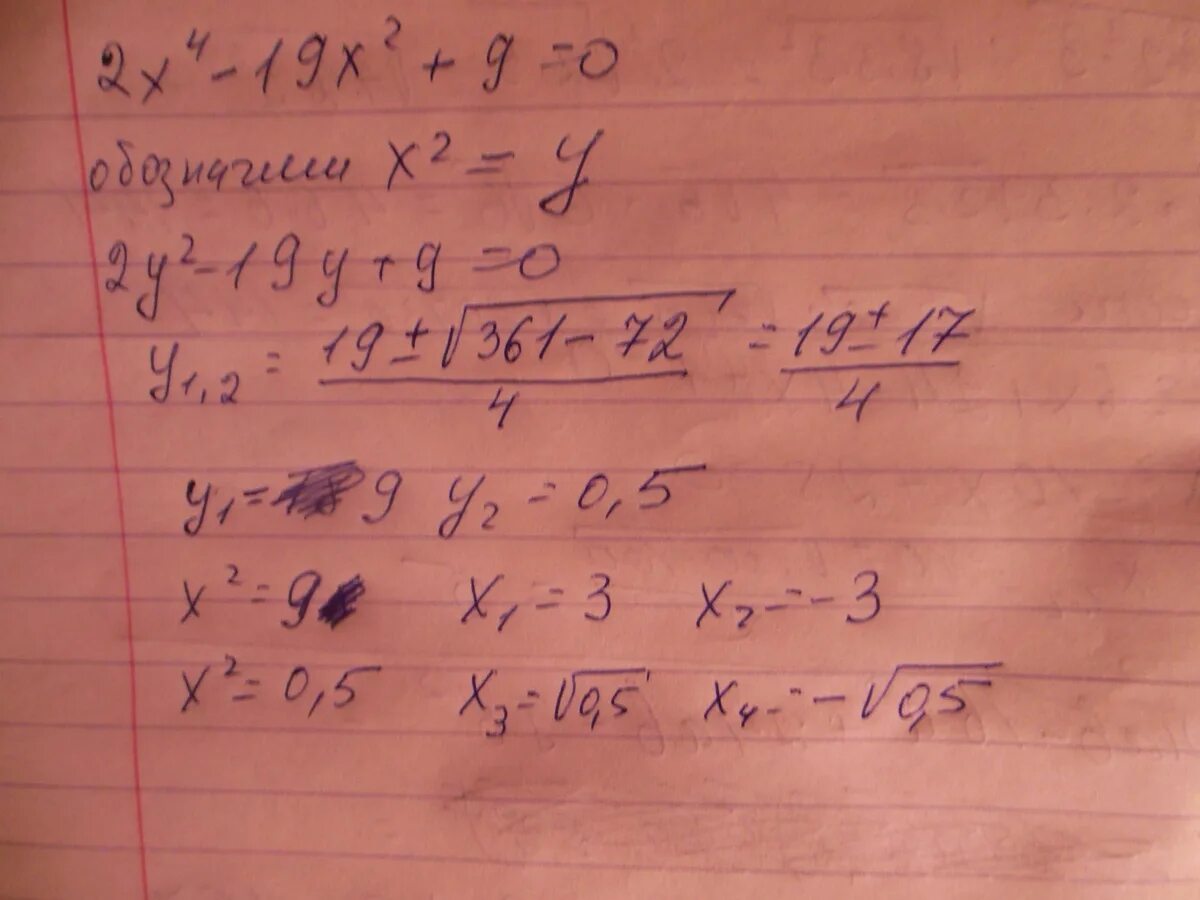 2x⁴ - 19x² + 9 = 0
обозначим x² = y
2y² - 19y + 9 = 0
y₁,₂ = (19 ± √(361 - 72)) / 4 = (19 ± 17) / 4
y₁ = 9 y₂ = 0,5
x² = 9 x₁ = 3 x₂ = -3
x² = 0,5 x₃ = √0,5 x₄ = -√0,5